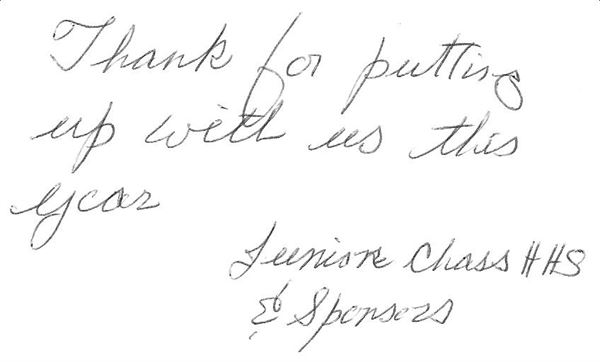 Thank for putting
up with us this
year
Junior Class HHS
& Sponsors